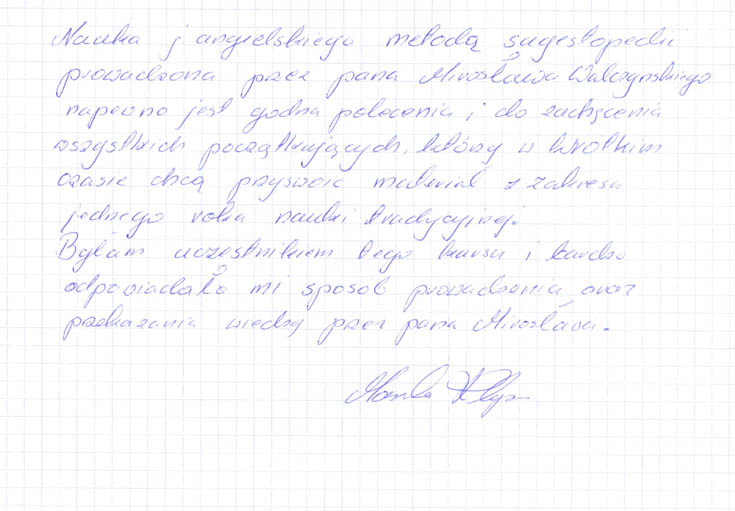 Nauka j angielskiego metodą sugestopedii
prowadzona przez pana Mirosława Walczyńskiego
napewno jest godna polecenia i do zachęcenia
wszystkich początkujących, którzy w krótkim
czasie chcą przyswoić materiał z zakresu
jednego roku nauki tradycyjnej.
Byłam uczestnikiem tego kursu i bardzo
odpowiadało mi sposób prowadzenia oraz
przekazania wiedzy przez pana Mirosława.